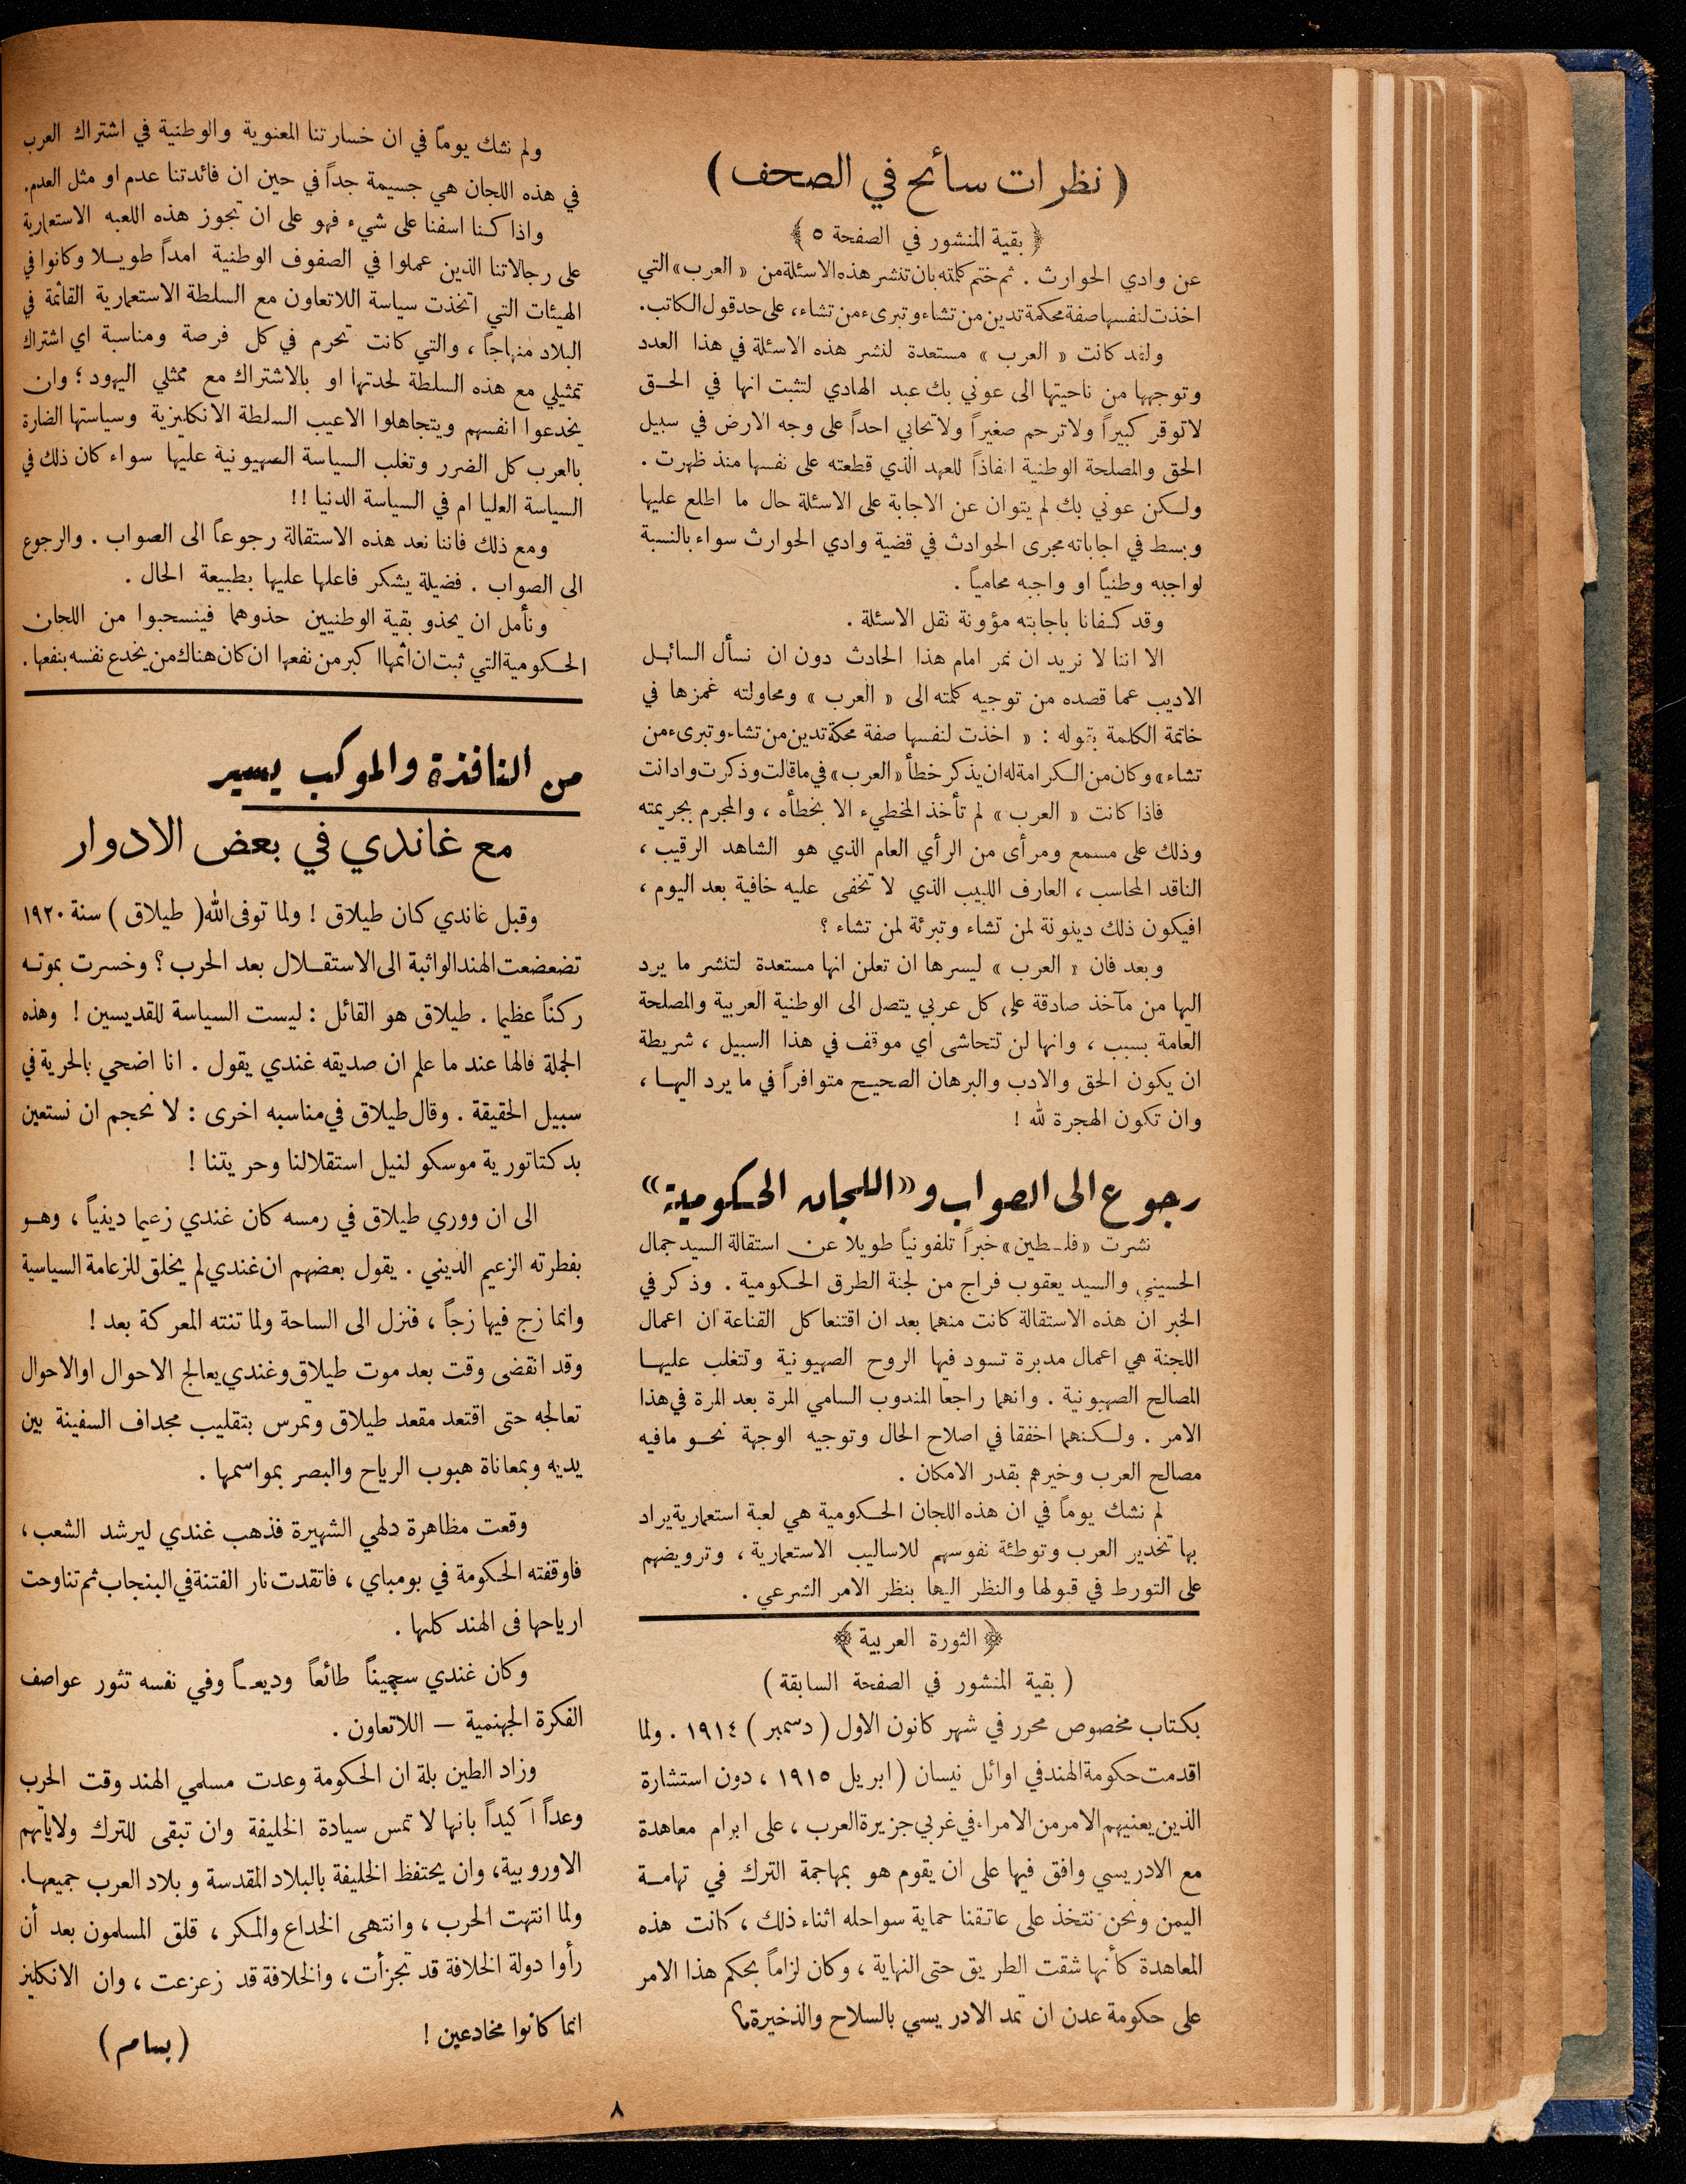 ( نظرات سائح في الصحف )
﴿ بقية المنشور في الصفحة ٥ ﴾
عن وادي الحوارث . ثم ختم كلمته بان تنشر هذه الاسئلة من « العرب » التي
اخذت لنفسها صفة محكمة تدين من تشاء وتبرىء من تشاء ، على حد قول الكاتب .
ولقد كانت « العرب » مستعدة لنشر هذه الاسئلة في هذا العدد
وتوجهها من ناحيتها الى عوني بك عبد الهادي لتثبت انها في الحـق
لا توقر كبيراً ولا ترحم صغيراً ولا تحابي احداً على وجه الارض في سبيل
الحق والمصلحة الوطنية انفاذاً للعهد الذي قطعته على نفسها منذ ظهرت .
ولـكن عوني بك لم يتوان عن الاجابة على الاسئلة حال ما اطلع عليها
وبسط في اجاباته مجرى الحوادث في قضية وادي الحوارث سواء بالنسبة
لواجبه وطنياً او واجبه محامياً .
وقد كـفانا باجابته مؤونة نقل الاسئلة .
الا اننا لا نريد ان نمر امام هذا الحادث دون ان نسأل السائـل
الاديب عما قصده من توجيه كلمته الى « العرب » ومحاولته غمزها في
خاتمة الكلمة بقوله : « اخذت لنفسها صفة محكمة تدين من تشاء وتبرىء من
تشاء » وكان من الـكرامة له ان يذكر خطأ « العرب » في ما قالت وذكرت وادانت
فاذا كانت « العرب » لم تأخذ المخطيء الا بخطأه ، والمجرم بجريمته
وذلك على مسمع ومرأى من الرأي العام الذي هو الشاهد الرقيب ،
الناقد المحاسب ، العارف اللبيب الذي لا تخفى عليه خافية بعد اليوم ،
افيكون ذلك دينونة لمن تشاء وتبرئة لمن تشاء ؟
وبعد فان « العرب » ليسرها ان تعلن انها مستعدة لتنشر ما يرد
اليها من مآخذ صادقة على كل عربي يتصل الى الوطنية العربية والمصلحة
العامة بسبب ، وانها لن تتحاشى اي موقف في هذا السبيل ، شريطة
ان يكون الحق والادب والبرهان الصحيح متوافراً في ما يرد اليهـا ،
وان تكون الهجرة لله !
رجوع الى الصواب و « اللجان الحكومية »
نشرت « فلـطين » خبراً تلفونياً طويلا عن استقالة السيد جمال
الحسيني والسيد يعقوب فراج من لجنة الطرق الحـكومية . وذكر في
الخبر ان هذه الاستقالة كانت منهما بعد ان اقتنعا كل القناعة ان اعمال
اللجنة هي اعمال مدبرة تسود فيها الروح الصهيونية وتتغلب عليهـا
المصالح الصهيونية . وانهما راجعا المندوب السامي المرة بعد المرة في هذا
الامر . ولـكنهما اخفقا في اصلاح الحال وتوجيه الوجهة نحـو مافيه
مصالح العرب وخيرهم بقدر الامكان .
لم نشك يوماً في ان هذه اللجان الحـكومية هي لعبة استعمارية يراد
بها تخدير العرب وتوطئة نفوسهم للاساليب الاستعمارية ، وترويضهم
على التورط في قبولها والنظر اليها بنظر الامر الشرعي .
﴿ الثورة العربية ﴾
( بقية المنشور في الصفحة السابقة )
بكتاب مخصوص محرر في شهر كانون الاول ( دسمبر ) ١٩١٤ . ولما
اقدمت حكومة الهند في اوائل نيسان ( ابريل ١٩١٥ ، دون استشارة
الذين يعنيهم الامر من الامراء في غربي جزيرة العرب ، على ابرام معاهدة
مع الادريسي وافق فيها على ان يقوم هو بمهاجمة الترك في تهامـة
اليمن ونحن نتخذ على عاتقنا حماية سواحله اثناء ذلك ، كانت هذه
المعاهدة كأنها شقت الطريق حتى النهاية ، وكان لزاماً بحكم هذا الامر
على حكومة عدن ان تمد الادريسي بالسلاح والذخيرة ؟
ولم نشك يوماً في ان خسارتنا المعنوية والوطنية في اشتراك العرب
في هذه اللجان هي جسيمة جداً في حين ان فائدتنا عدم او مثل العدم .
واذا كـنا اسفنا على شيء فهو على ان تجوز هذه اللعبه الاستعمارية
على رجالاتنا الذين عملوا في الصفوف الوطنية امداً طويـلا وكانوا في
الهيئات التي اتخذت سياسة اللاتعاون مع السلطة الاستعمارية القائمة في
البلاد منهاجاً ، والتي كانت تحرم في كل فرصة ومناسبة اي اشتراك
تمثيلي مع هذه السلطة لحدتها او بالاشتراك مع ممثلي اليهود ؛ وان
يخدعوا انفسهم ويتجاهلوا الاعيب السلطة الانكليزية وسياستها الضارة
بالعرب كل الضرر وتغلب السياسة الصهيونية عليها سواء كان ذلك في
السياسة العليا ام في السياسة الدنيا !!
ومع ذلك فاننا نعد هذه الاستقالة رجوعاً الى الصواب . والرجوع
الى الصواب . فضيلة يشكر فاعلها عليها بطبيعة الحال .
ونأمل ان يحذو بقية الوطنيين حذوهما فينسحبوا من اللجان
الحـكومية التي ثبت ان اثمها اكبر من نفعها ان كان هناك من يخدع نفسه بنفعها .
من النافذة والموكب يسير
مع غاندي في بعض الادوار
وقبل غاندي كان طيلاق ! ولما توفى الله ( طيلاق ) سنة ١٩٢٠
تضعضعت الهند الواثبة الى الاستقـلال بعد الحرب ؟ وخسرت بموتـه
ركناً عظيما . طيلاق هو القائل : ليست السياسة للقديسين ! وهذه
الجملة قالها عند ما علم ان صديقه غندي يقول . انا اضحي بالحرية في
سبيل الحقيقة . وقال طيلاق في مناسبه اخرى : لا نحجم ان نستعين
بدكتاتورية موسكو لنيل استقلالنا وحريتنا !
الى ان ووري طيلاق في رمسه كان غندي زعيما دينياً ، وهـو
بفطرته الزعيم الديني . يقول بعضهم ان غندي لم يخلق للزعامة السياسية
وانما زج فيها زجاً ، فنزل الى الساحة ولما تنته المعركة بعد !
وقد انقضى وقت بعد موت طيلاق وغندي يعالج الاحوال او الاحوال
تعالجه حتى اقتعد مقعد طيلاق وتمرس بتقليب مجداف السفينة بين
يديه وبمعاناة هبوب الرياح والبصر بمواسمها .
وقعت مظاهرة دلهي الشهيرة فذهب غندي ليرشد الشعب ،
فاوقفته الحكومة في بومباي ، فاتقدت نار الفتنة في البنجاب ثم تناوحت
ارياحها فى الهند كلها .
وكان غندي سجيناً طائعاً وديعـاً وفي نفسه تثور عواصف
الفكرة الجهنمية — اللاتعاون .
وزاد الطين بلة ان الحكومة وعدت مسلمي الهند وقت الحرب
وعداً اكيداً بانها لا تمس سيادة الخليفة وان تبقى للترك ولاياتهم
الاوروبية ، وان يحتفظ الخليفة بالبلاد المقدسة وبلاد العرب جميعهـا .
ولما انتهت الحرب ، وانتهى الخداع والمكر ، قلق المسلمون بعد أن
رأوا دولة الخلافة قد تجزأت ، والخلافة قد زعزعت ، وان الانكليز
انما كانوا مخادعين !
( بسام )
٨